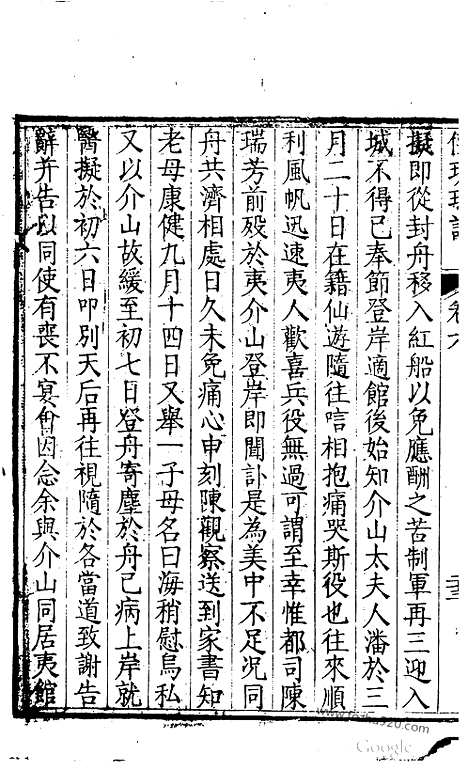 使琉球記 卷六
擬即從封舟移入紅船以免應酬之苦制軍再三迎入
城不得已奉節登岸適館後始知介山太夫人潘於三
月二十日在籍仙遊隨往唁相抱痛哭斯役也往來順
利風帆迅速夷人歡喜兵役無過可謂至幸惟都司陳
瑞芳前歿於夷介山登岸即聞訃是為美中不足況同
舟共濟相處日久未免痛心申刻陳觀察送到家書知
老母康健九月十四日又舉一子母名曰海稍慰烏私
又以介山故緩至初七日登舟寄塵於舟已病上岸就
醫擬於初六日叩別天后再往視隨於各當道致謝告
辭并告以同使有喪不宴會因念余與介山同居夷館
Google